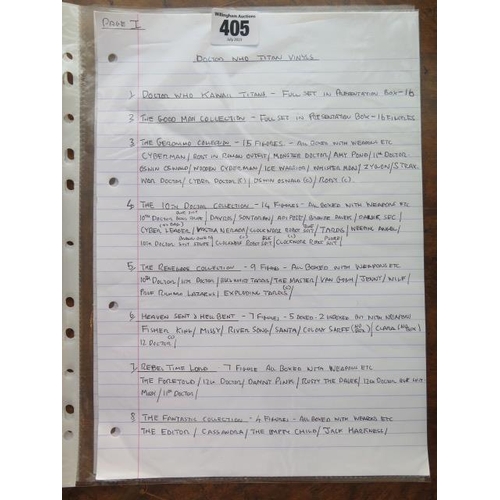 PAGE 1
Willingham Auctions
405
July 2023
DOCTOR WHO TITAN VINYLS
DOCTOR WHO KAWAII TITANS - FULL SET IN PRESENTATION BOX - 16
THE GOOD MAN COLLECTION - FULL SET IN PRESENTATION BOX - 16 FIGURES
3 THE GERONIMO COLLECTION - 16 FIGURES - ALL BOXED WITH WEAPONS ETC
CYBERMAN / RORY IN ROMAN OUTFIT / MONSTER DOCTOR / AMY POND / 11TH DOCTOR
OSWIN OSWALD / WOODEN CYBERMAN / ICE WARRIOR / WHISPER MAN / ZYGON / STRAX
WAR DOCTOR / CYBER DOCTOR / OSWIN OSWALD (C) / RORY (C)
4, THE 10TH DOCTOR COLLECTION - 14 FIGURES - ALL BOXED WITH WEAPONS ETC
10TH DOCTOR / DAVROS / SONTARAN / DALEK SEC /
CYBER LEADER / VASHTA NERADA / CLOCKWORK ROBOT / TARDIS / WEEPING ANGEL /
10TH DOCTOR / CLOCKWORK ROBOT / CLOCKWORK ROBOT
5, THE RENEGADE COLLECTION - 9 FIGURES - ALL BOXED WITH WEAPONS ETC
10TH DOCTOR / 10TH DOCTOR / TARDIS / THE MASTER / VAN GOGH / JENNY / WILF /
PROF RICHARD LAZARUS / EXPLODING TARDIS (C) /
6 HEAVEN SENT & HELL BENT - 7 FIGURES - 5 BOXED - 2 UNBOXED ALL WITH WEAPONS
FISHER KING / MISSY / RIVER SONG / SANTA / COLONY SARFF (NO BOX) / CLARA (NO BOX)
12 DOCTOR /
7, REBEL TIME LORD 7 FIGURES ALL BOXED WITH WEAPONS ETC
THE FORETOLD / 12TH DOCTOR / DANNY PINK / RUSTY THE DALEK / 12TH DOCTOR
11TH DOCTOR /
8 THE FANTASTIC COLLECTION - 4 FIGURES - ALL BOXED WITH WEAPONS ETC
THE EDITOR / CASSANDRA / THE EMPTY CHILD / JACK HARKNESS /